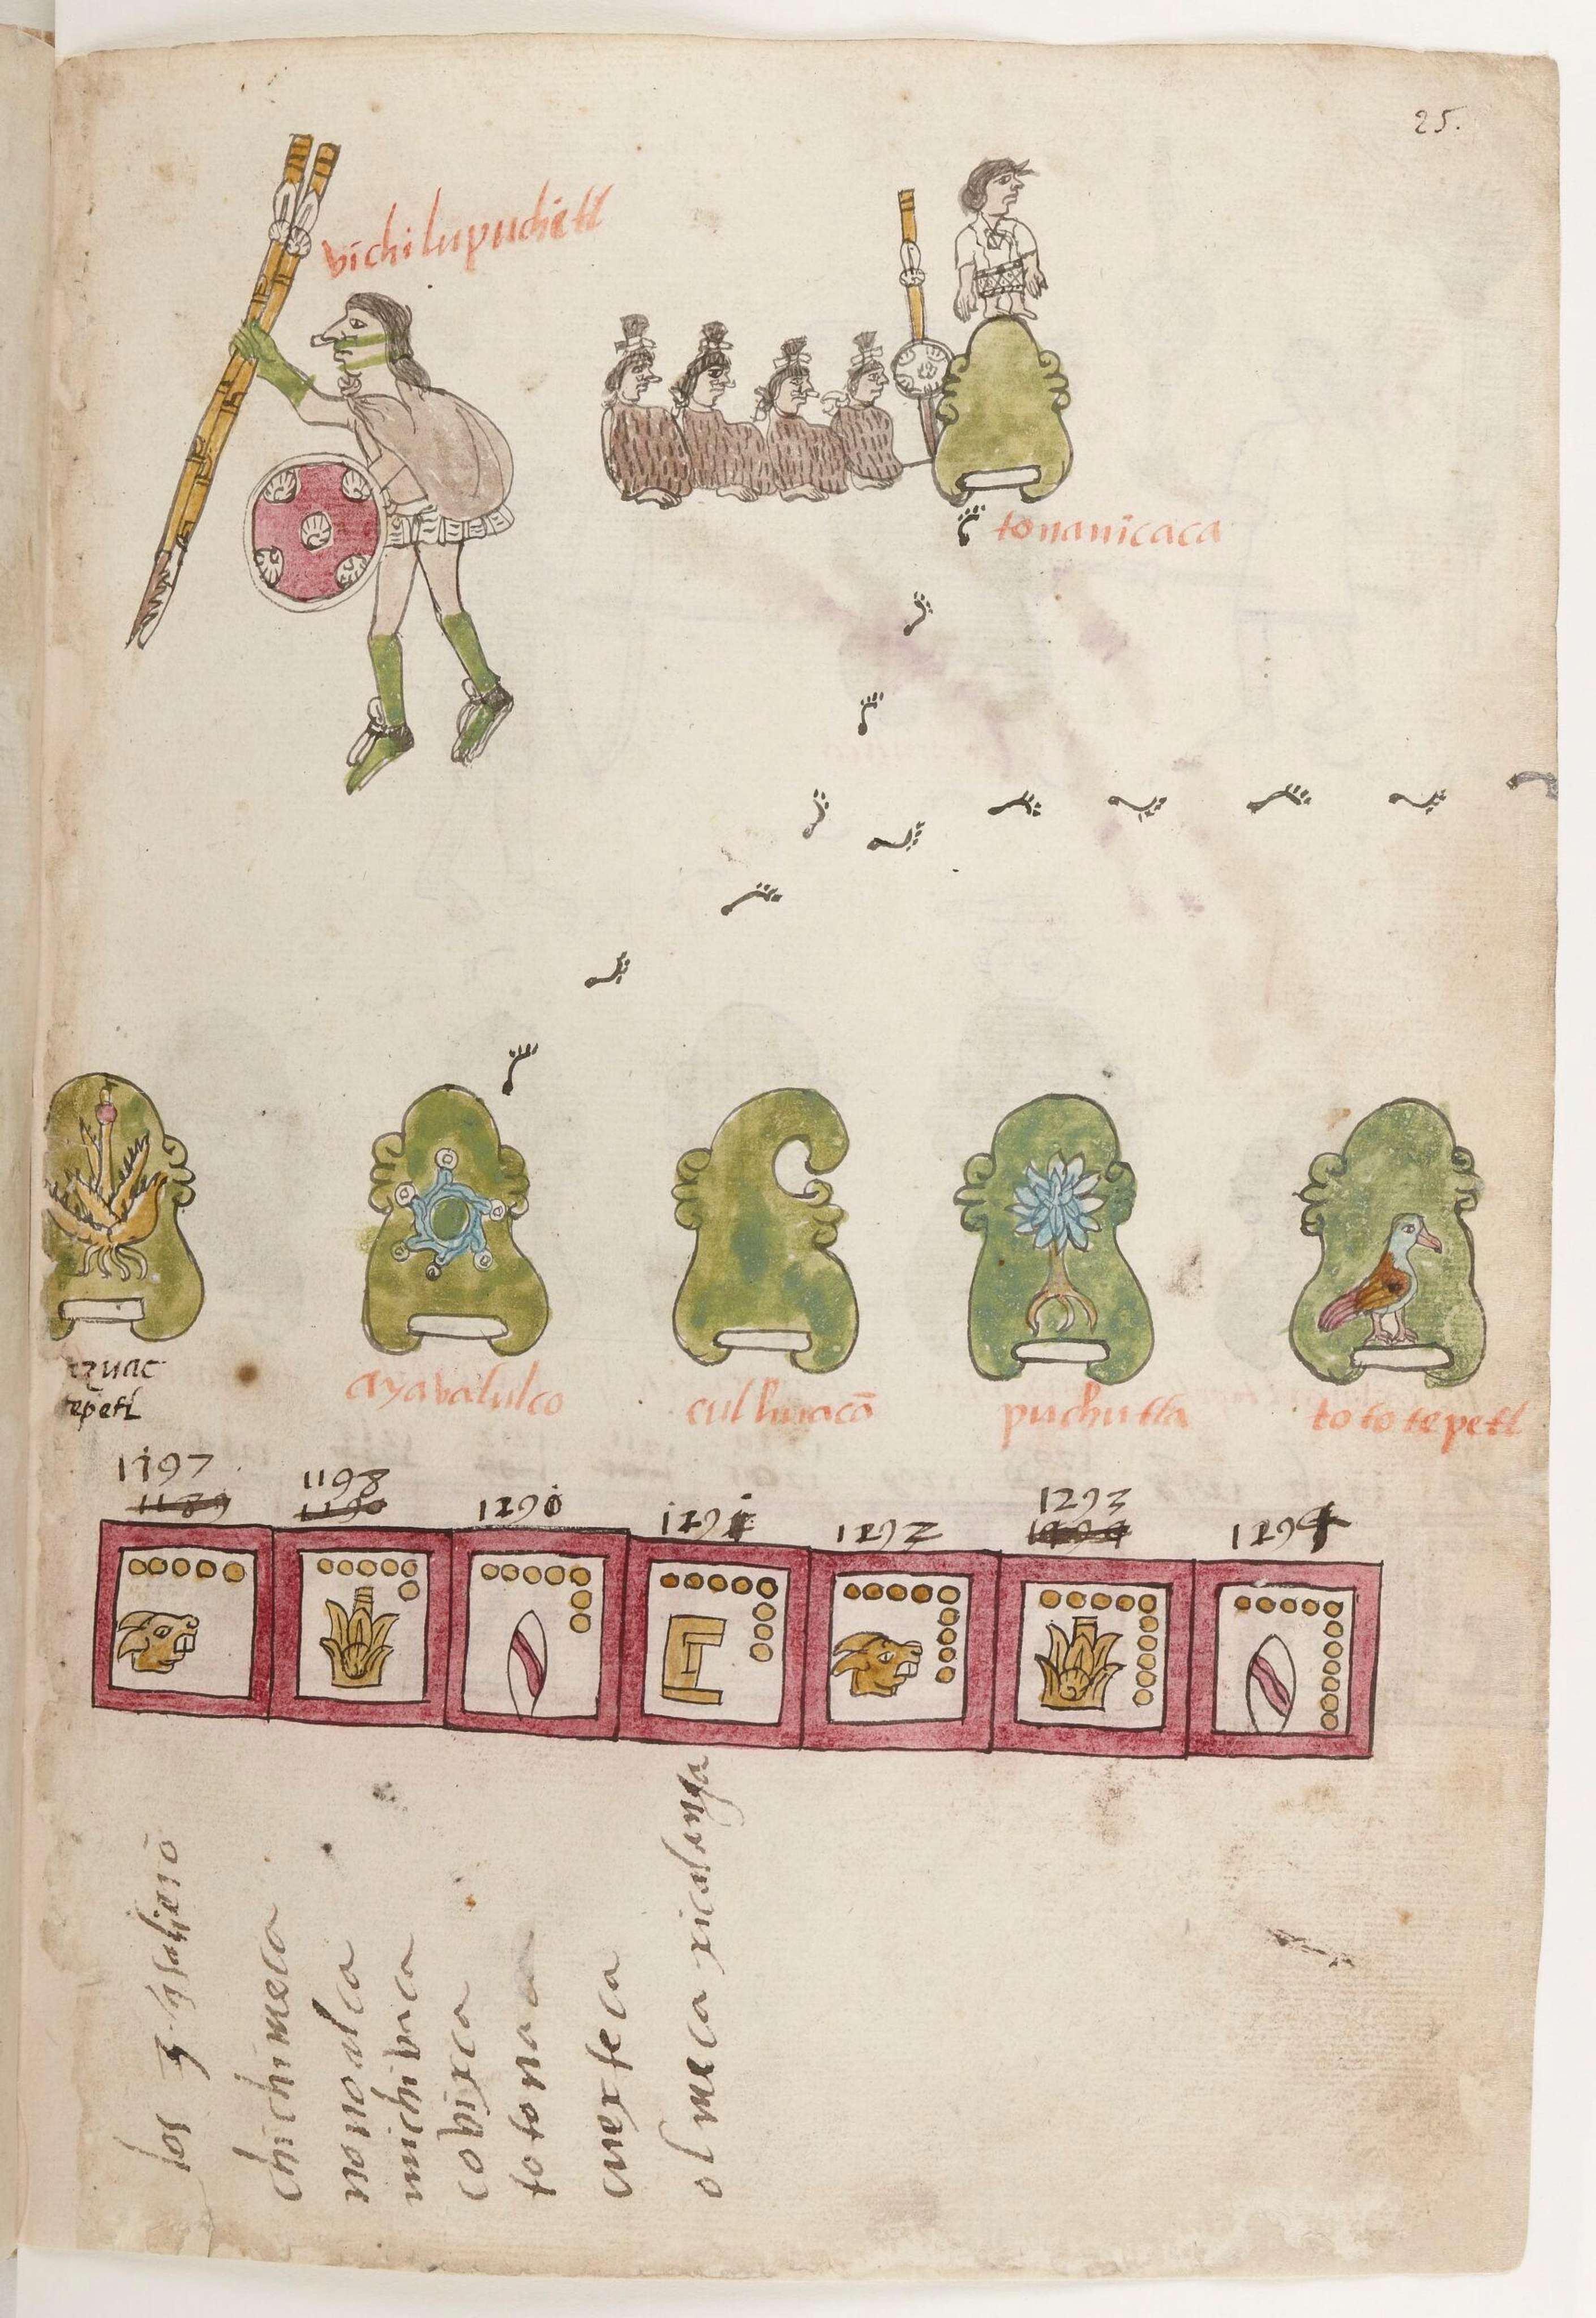 25.
vichilupuchitl
tonanicaca
tepetl
ayavalulco
culhuacā
puchutla
tototepetl
1197
1189
1198
1190
1290
1291
1292
1293
1294
los q
chichimeca
nonoalca
michivaca
covixca
totonaca
cuexteca
olmeca xicalanga